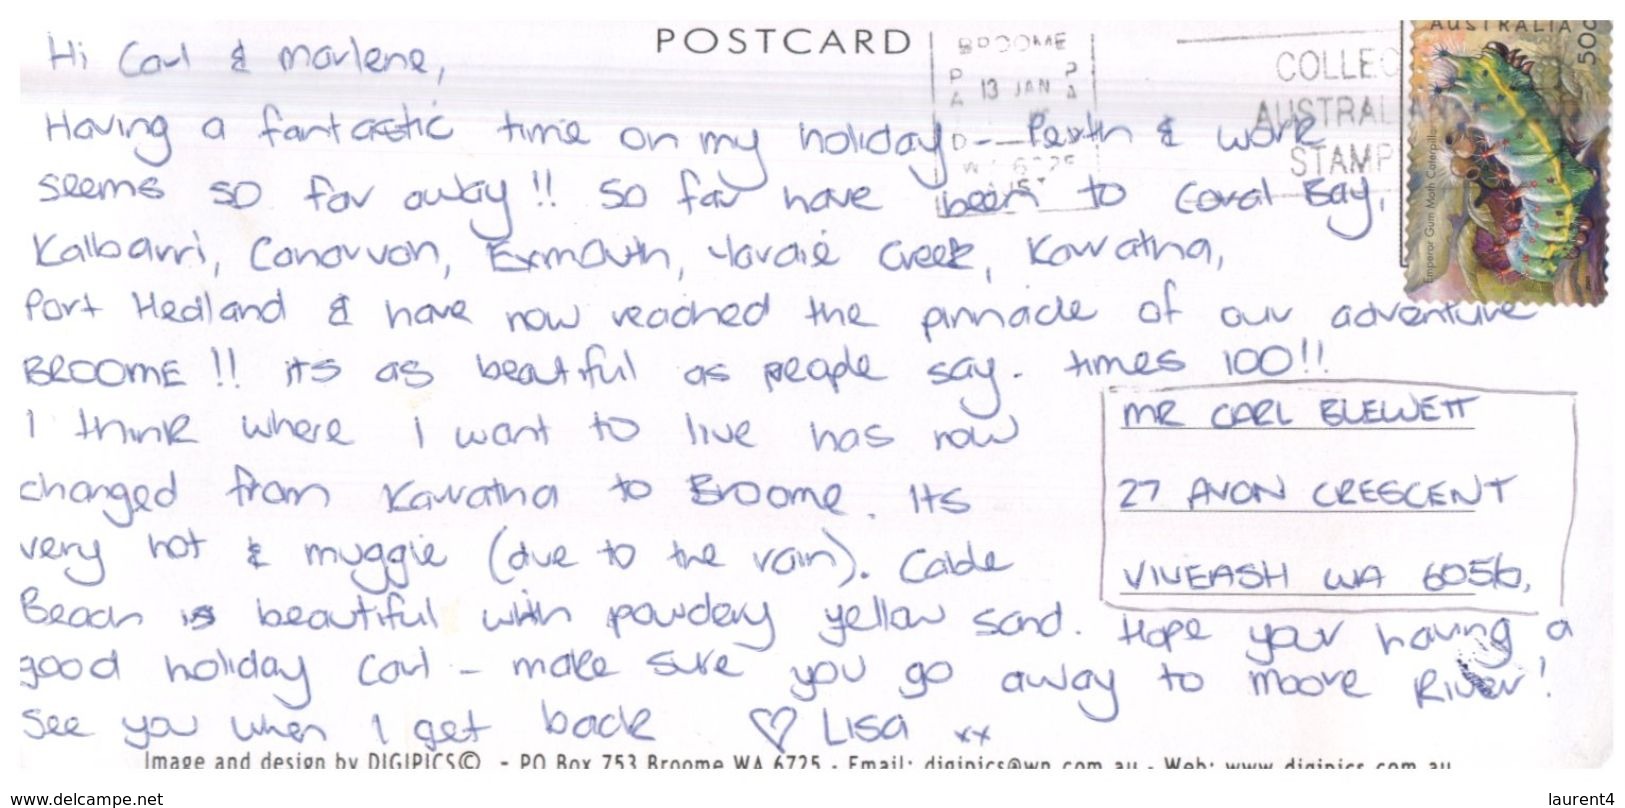 POSTCARD
BROOME
13 JAN
WA 6725
COLLEC
AUSTRALIAN
STAMP
AUSTRALIA 50c
Emperor Gum Moth Caterpillar
Hi Carl & Marlene,
Having a fantastic time on my holiday - Perth & work
seems so far away!! So far have been to Coral Bay,
Kalbarri, Canarvon, Exmouth, Yardie Creek, Karratha,
Port Hedland & have now reached the pinnacle of our adventure
BROOME!! its as beautiful as people say. times 100!!
I think where I want to live has now
changed from Karratha to Broome. Its
very hot & muggie (due to the rain). Cable
Beach is beautiful with powdery yellow sand. Hope your having a
good holiday Carl - make sure you go away to Moore River!
See you when I get back ♡ Lisa xx
MR CARL BLEWETT
27 AVON CRESCENT
VIVEASH WA 6056.
Image and design by DIGIPICS© - PO Box 753 Broome WA 6725 - Email: digipics@wn.com.au - Web: www.digipics.com.au
www.delcampe.net
laurent4